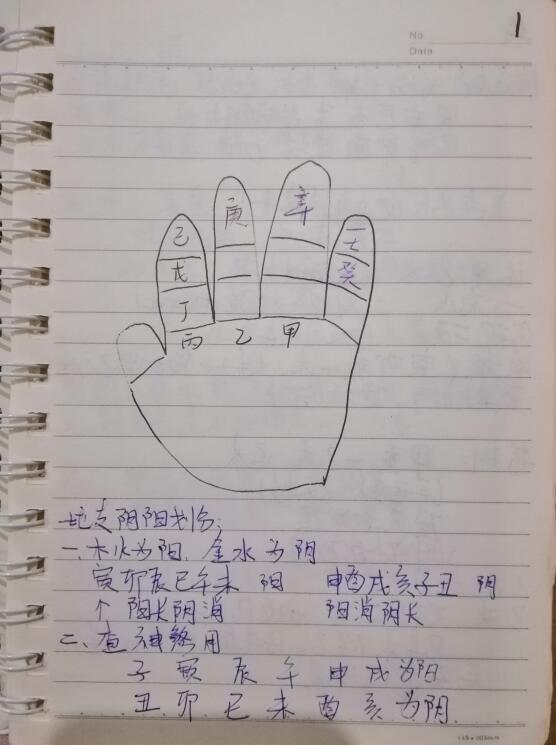 No
Date
1
辛
庚
己
壬
戊
癸
丁
丙 乙 甲
地支阴阳划分:
一.木火为阳.金水为阴
寅卯辰巳午未 阳 申酉戌亥子丑 阴
个 阳长阴消 阳消阴长
二、查神煞用
子 寅 辰 午 申 戌为阳
丑 卯 巳 未 酉 亥 为阴.